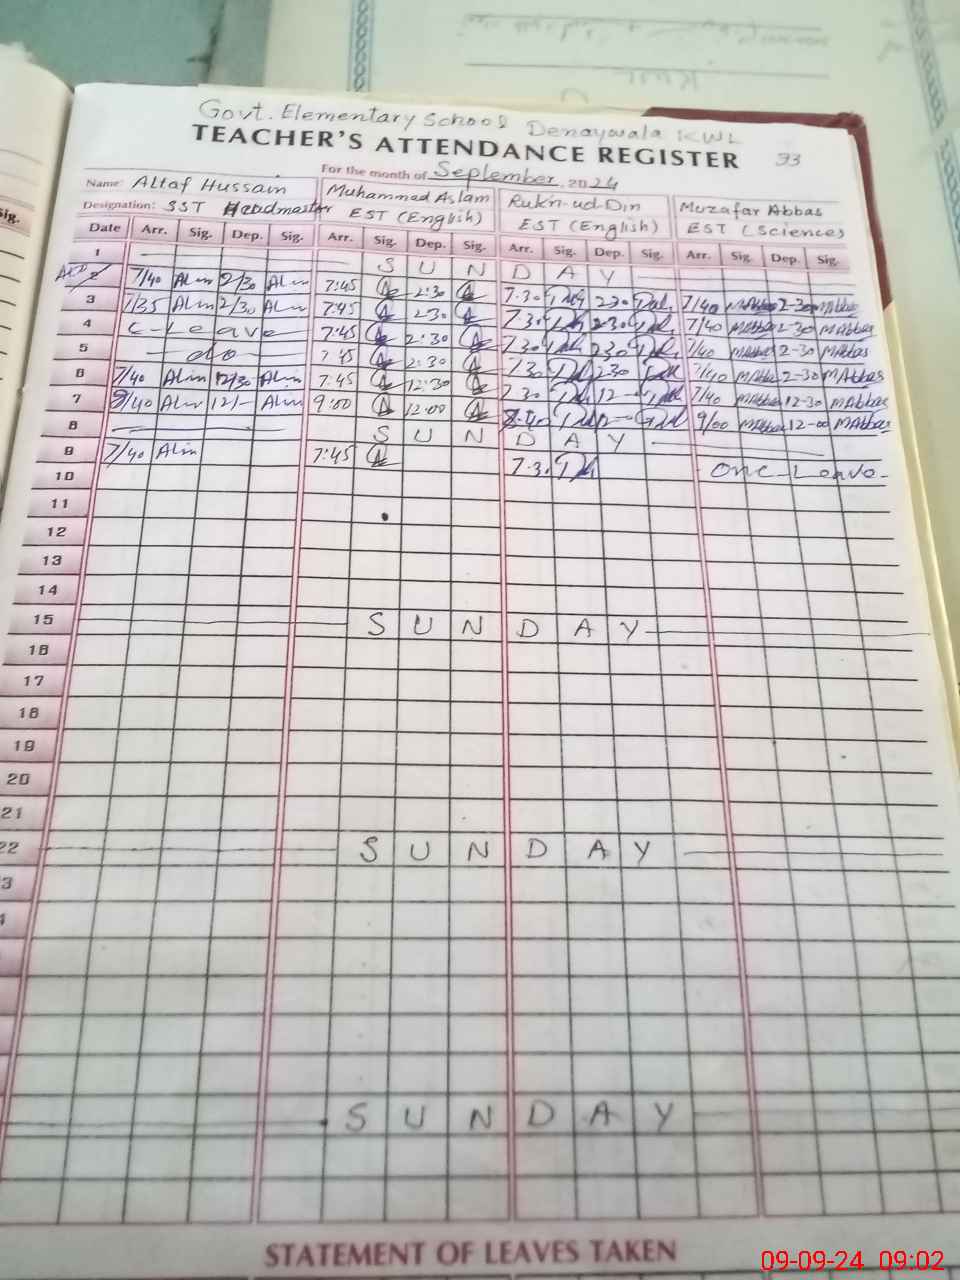 Govt. Elementary School Denaywala KWL
TEACHER'S ATTENDANCE REGISTER 33
For the month of September 2024
Name: Altaf Hussain Muhammad Aslam Rukn-ud-Din Muzafar Abbas
Designation: SST Headmaster EST (English) EST (English) EST (Sciences)
Sig.
Date Arr. Sig. Dep. Sig. Arr. Sig. Dep. Sig. Arr. Sig. Dep. Sig. Arr. Sig. Dep. Sig.
1 S U N D A Y
2 7/40 2/30 7:45 2:30 7.30 2.30 7/40 MAbbas 2-30 MAbbas
3 7/35 2/30 7:45 2:30 7.30 2.30 7/40 MAbbas 2-30 MAbbas
4 C-Leave 7:45 2:30 7.30 2.30 7/40 MAbbas 2-30 MAbbas
5 do 7:45 2:30 7.30 2.30 7/40 MAbbas 2-30 MAbbas
6 7/40 12/30 7:45 12:30 7.30 12- 7/40 MAbbas 12-30 MAbbas
7 9/40 12/- 9:00 12:00 9/00 MAbbas 12-00 MAbbas
8 S U N D A Y
9 7/40 7:45 7.30 One-Leave-
10
11
12
13
14
15 S U N D A Y
16
17
18
19
20
21
22 S U N D A Y
3
4
S U N D A Y
STATEMENT OF LEAVES TAKEN
09-09-24 09:02